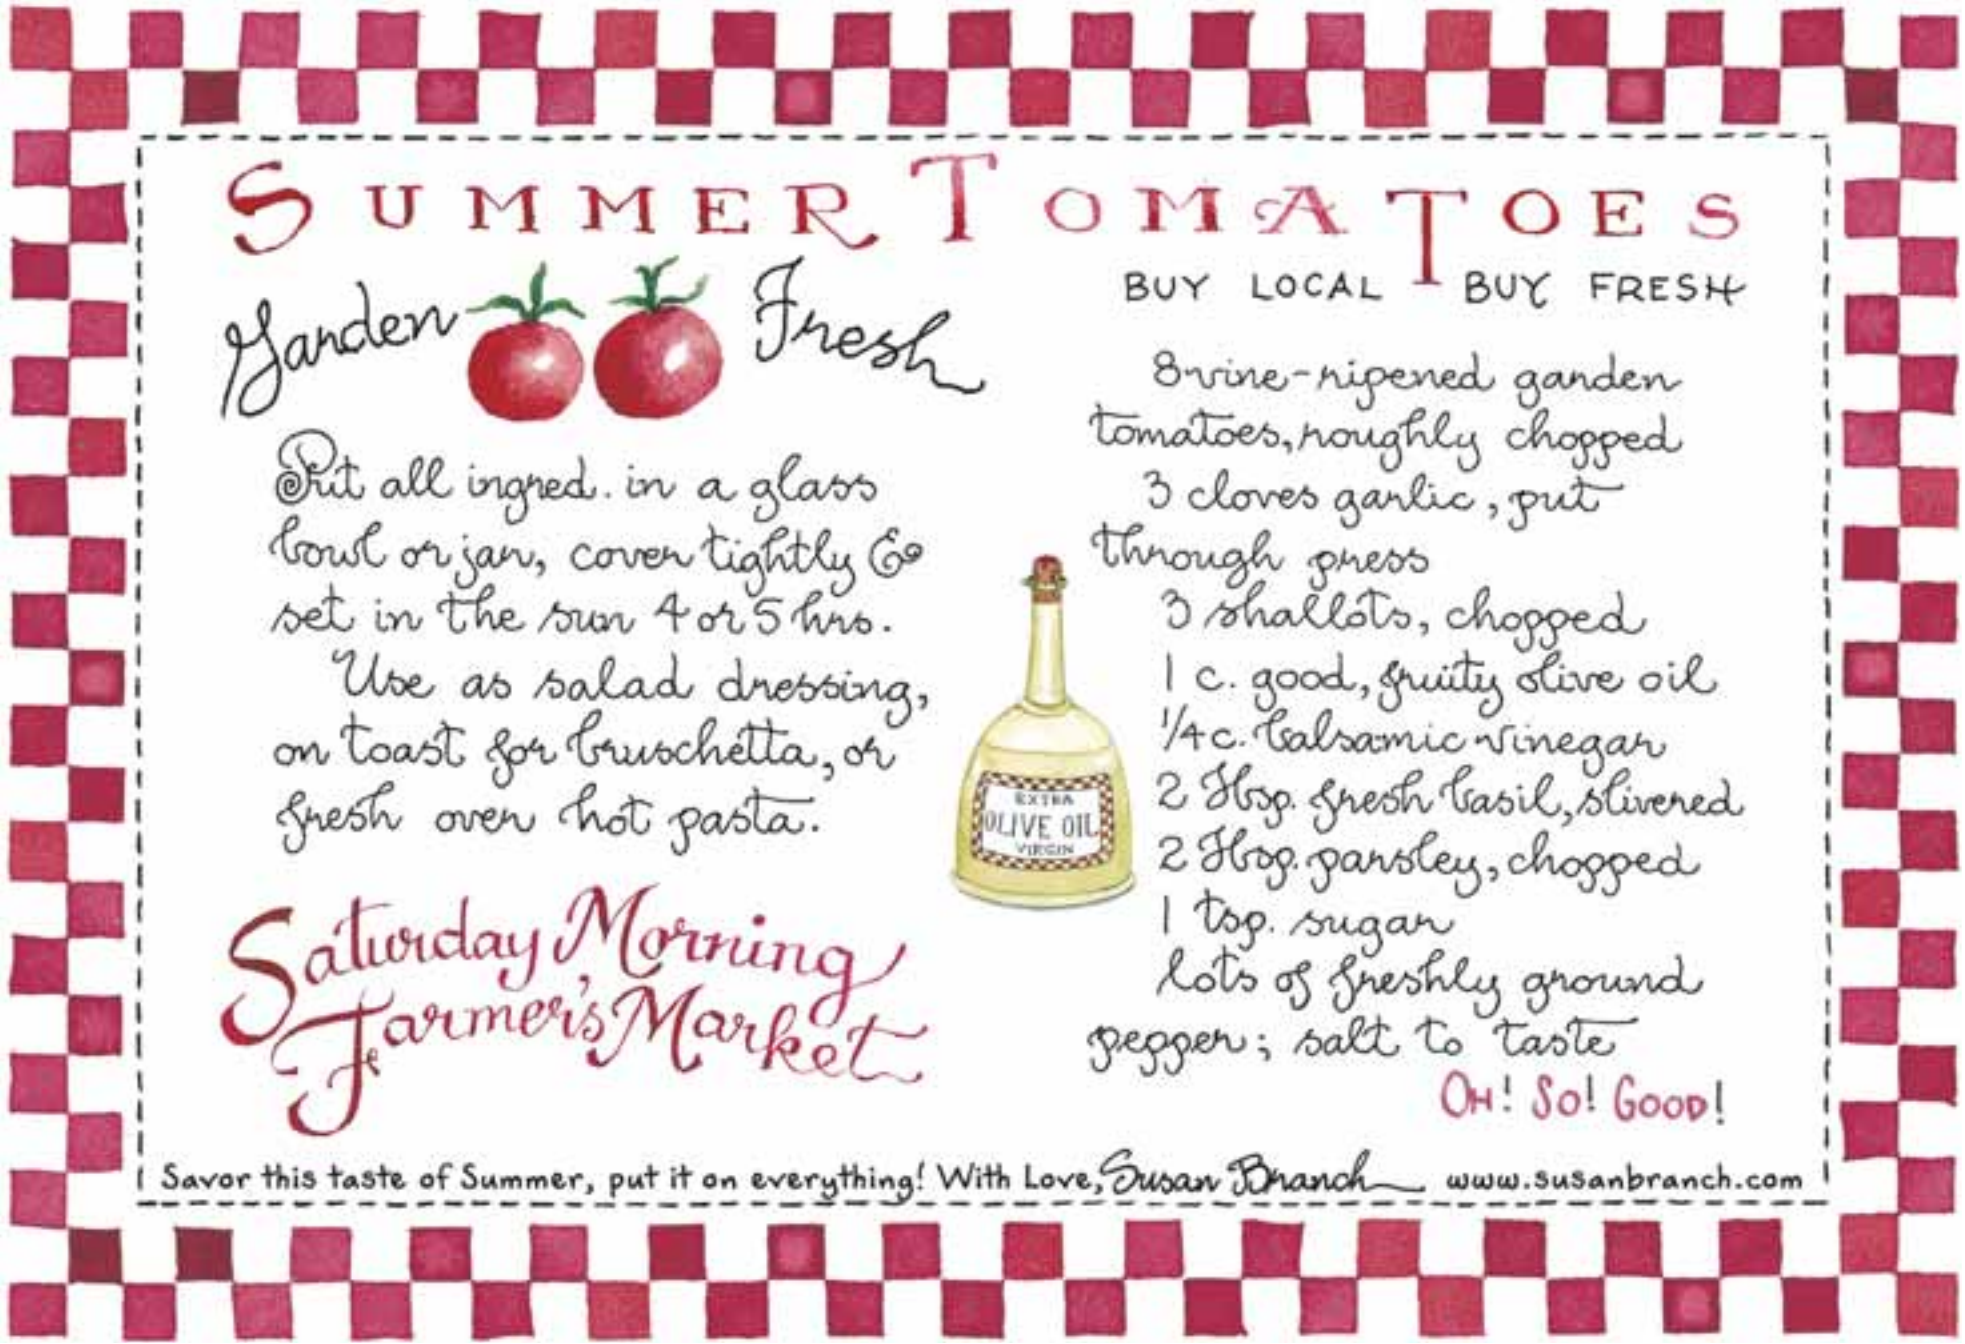 SUMMER TOMATOES
Garden Fresh
BUY LOCAL BUY FRESH
Put all ingred. in a glass
bowl or jar, cover tightly &
set in the sun 4 or 5 hrs.
Use as salad dressing,
on toast for bruschetta, or
fresh over hot pasta.
Saturday Morning
Farmer's Market
EXTRA
OLIVE OIL
VIRGIN
8 vine-ripened garden
tomatoes, roughly chopped
3 cloves garlic, put
through press
3 shallots, chopped
1 c. good, fruity olive oil
1/4 c. balsamic vinegar
2 Tbsp. fresh basil, slivered
2 Tbsp. parsley, chopped
1 tsp. sugar
lots of freshly ground
pepper; salt to taste
OH! SO! GOOD!
Savor this taste of Summer, put it on everything! With Love, Susan Branch www.susanbranch.com